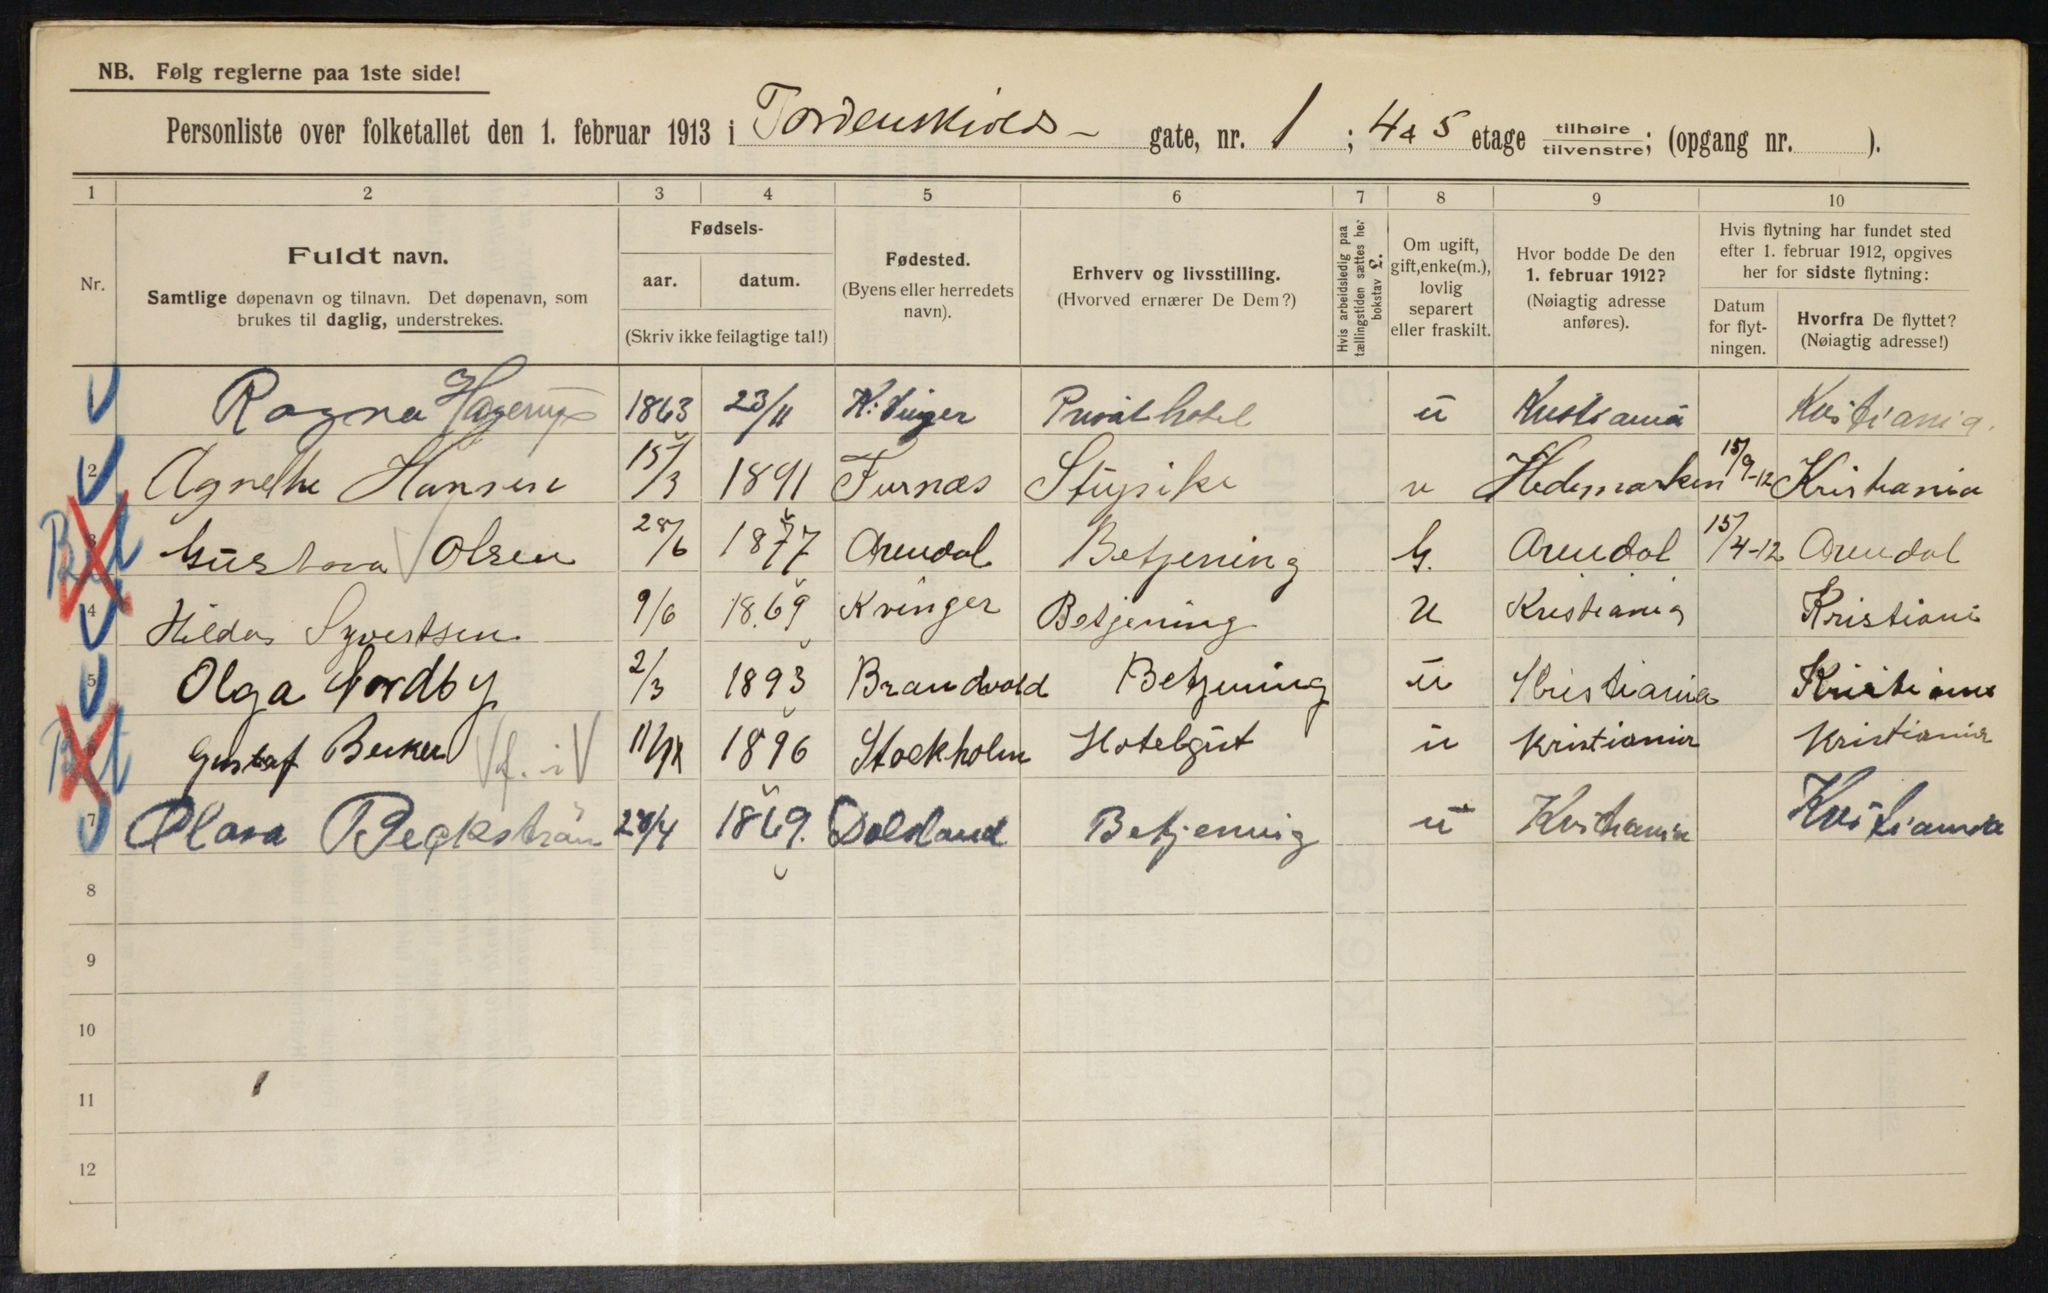 NB. Følg reglerne paa 1ste side!
Personliste over folketallet den 1. februar 1913 i Tordenskiolds- gate, nr. 1; 4 & 5 etage tilhøire tilvenstre; (opgang nr. ).
1 2 3 4 5 6 7 8 9 10
Nr.
Fuldt navn.
Samtlige døpenavn og tilnavn. Det døpenavn, som
brukes til daglig, understrekes.
Fødsels-
aar. datum.
(Skriv ikke feilagtige tal!)
Fødested.
(Byens eller herredets
navn).
Erhverv og livsstilling.
(Hvorved ernærer De Dem?)
Hvis arbeidsledig paa
tællingstiden sættes her
bokstav L.
Om ugift,
gift, enke(m.),
lovlig
separert
eller fraskilt.
Hvor bodde De den
1. februar 1912?
(Nøiagtig adresse
anføres).
Hvis flytning har fundet sted
efter 1. februar 1912, opgives
her for sidste flytning:
Datum
for flyt-
ningen.
Hvorfra De flyttet?
(Nøiagtig adresse!)
Ragna Hagerup 1863 23/11 K:vinger Privat hotel ū Kristiania Kristiania.
2 Agnethe Hansen 15/3 1891 Furnæs Stupike u Hedemarken 15/9-12 Kristiania
3 Gustava Olsen 28/6 1877 Arendal Betjening G. Arendal 15/4-12 Arendal
4 Hilda Syvertsen 9/6 1869 Kvinger Betjening U Kristiania Kristiania
5 Olga Nordby 2/3 1893 Brandvold Betjening ū Kristiania Kristiania
6 Gustaf Becker f. i 1896 Stockholm Hotelgut u Kristiania Kristiania
7 Clara Beckström 28/4 1869. Dalsland Betjening ū Kristiania Kristiania
8
9
10
11
12